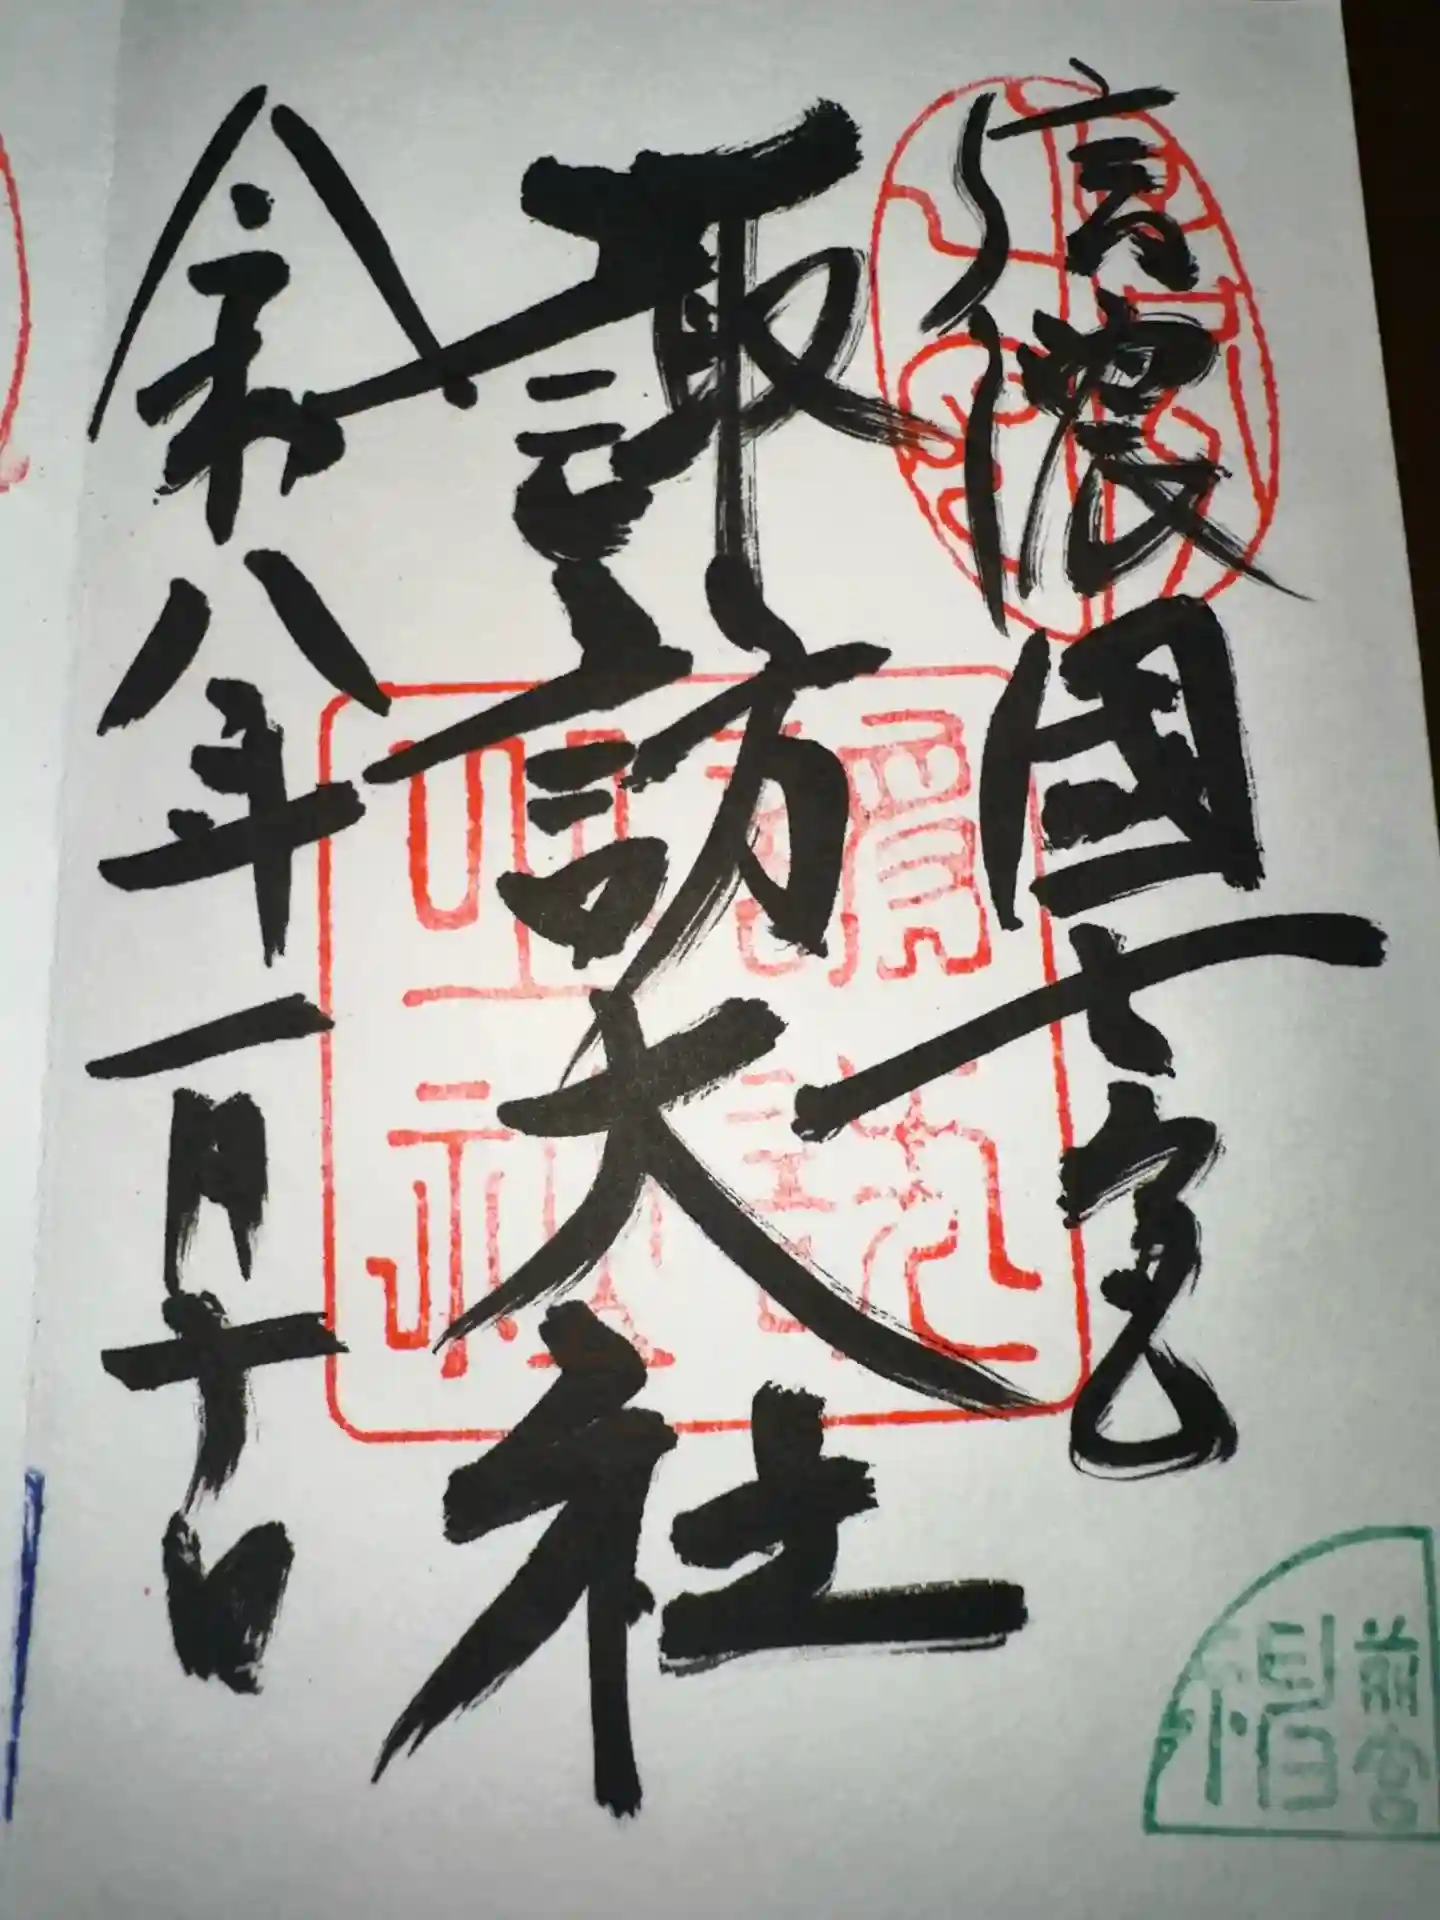 信濃國一之宮
諏訪大社
令和八年一月十日
前宮